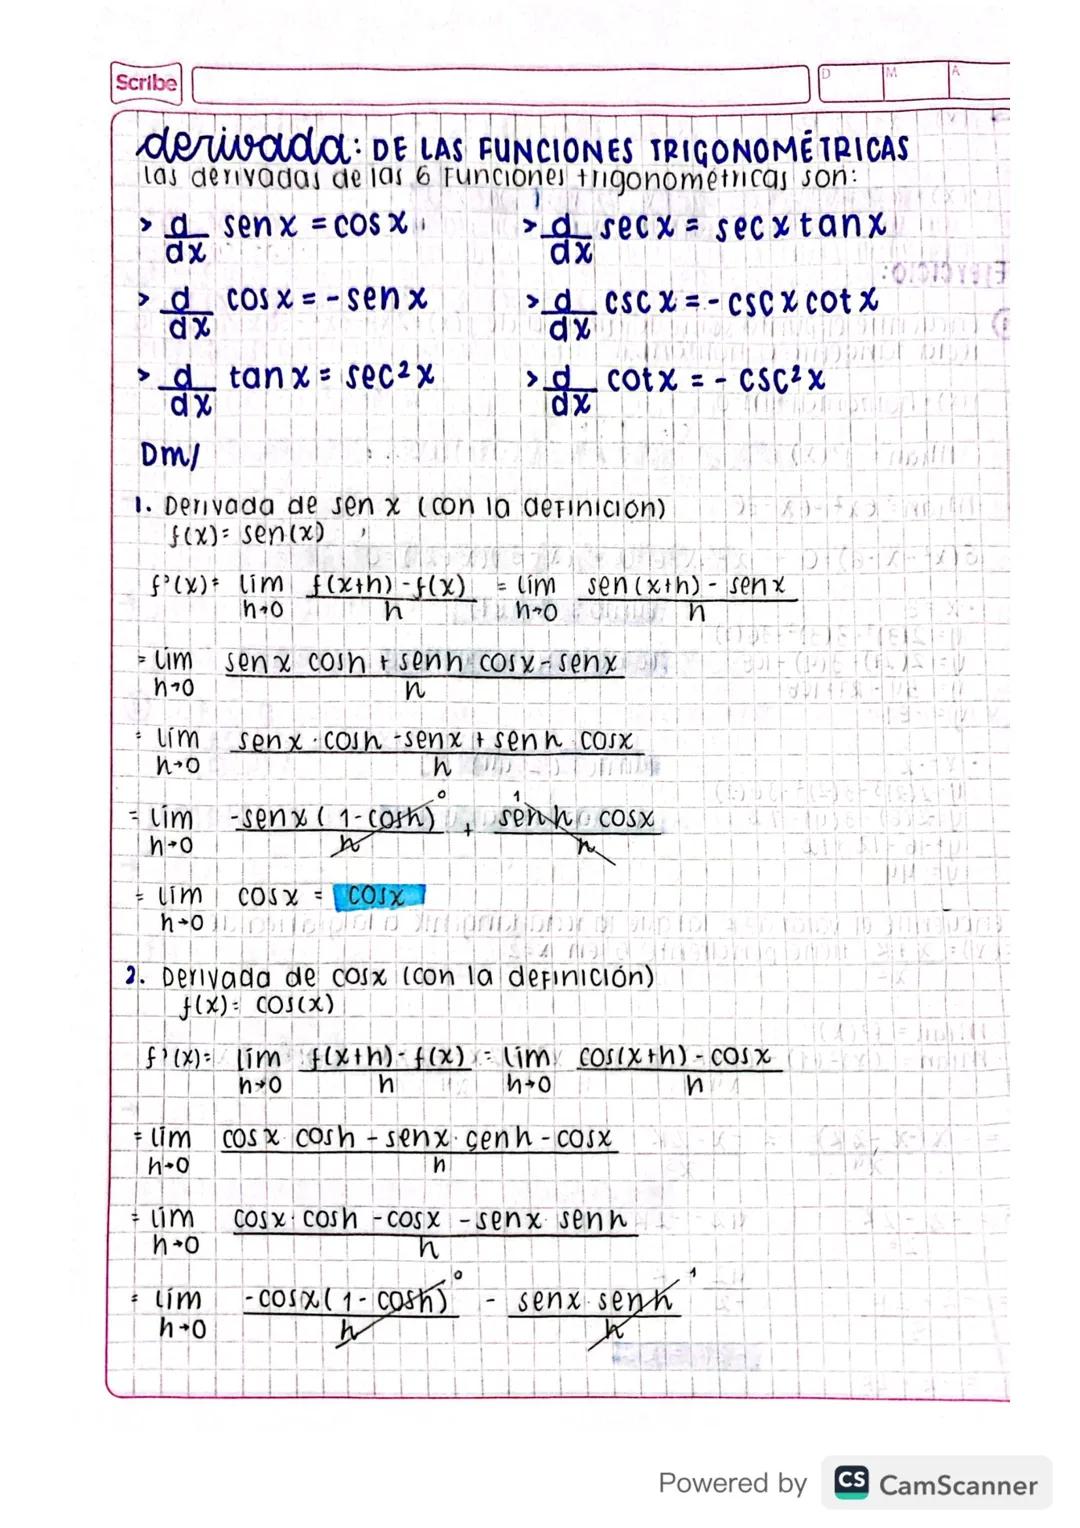 Scribe
D M A
derivada: DE LAS FUNCIONES TRIGONOMÉTRICAS
las derivadas de las 6 funciones trigonométricas son:
> d/dx sen x = cos x > d/dx sec x = sec x tan x
> d/dx cos x = - sen x > d/dx csc x = - csc x cot x
> d/dx tan x = sec² x > d/dx cot x = - csc² x
Dm/
1. Derivada de sen x (con la definición)
f(x) = sen(x)
f'(x) = lím h→0 f(x+h) - f(x) / h = lím h→0 sen(x+h) - sen x / h
= lím h→0 sen x cosh + senh cosx - senx / h
= lím h→0 senx · cosh - senx + senh cosx / h
= lím h→0 -senx (1-cosh) 0 / h + 1 senh cosx / h
= lím h→0 cosx = cosx
2. Derivada de cosx (con la definición)
f(x) = cos(x)
f'(x) = lím h→0 f(x+h) - f(x) / h = lím h→0 cos(x+h) - cosx / h
= lím h→0 cosx cosh - senx · senh - cosx / h
= lím h→0 cosx · cosh - cosx - senx · senh / h
= lím h→0 -cosx (1 - cosh) 0 / h - senx · senh 1 / h
Powered by CS CamScanner